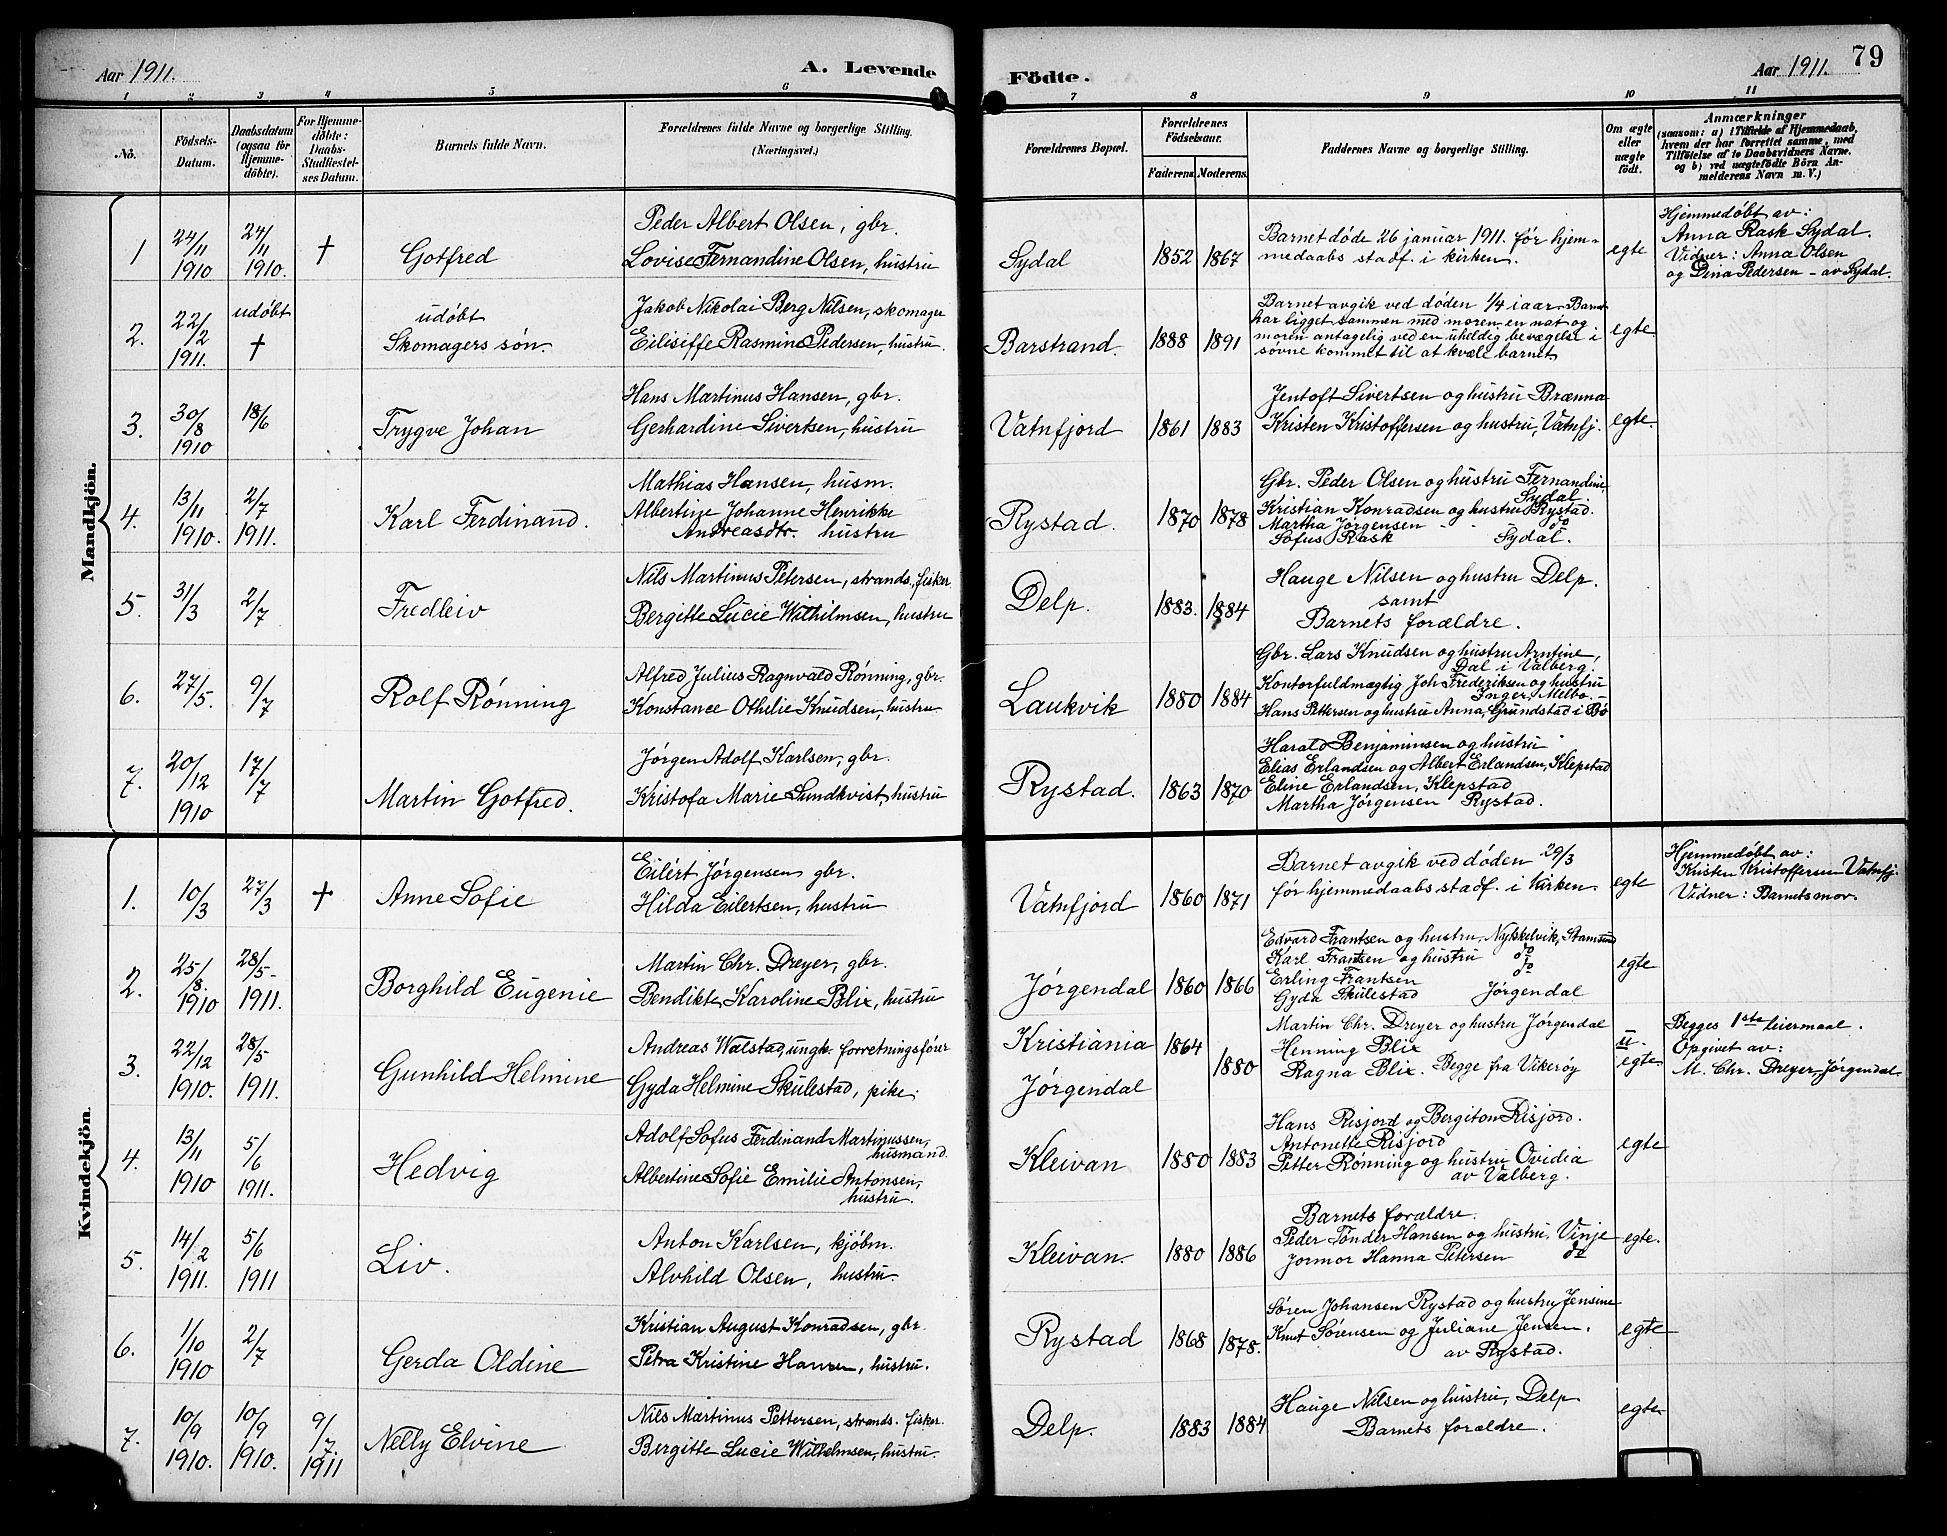 Aar 1911.
A. Levende
Födte.
Aar 1911.
79
1 2 3 4 5 6 7 8 9 10 11
No.
Födsels-
Datum.
Daabsdatum
(ogsaa for
Hjemme-
döbte).
For Hjemme-
döbte:
Daabs-
Stadfæstel-
ses Datum.
Barnets fulde Navn.
Forældrenes fulde Navne og borgerlige Stilling.
(Næringsvei.)
Forældrenes Bopæl.
Forældrenes
Födselsaar.
Faderens.
Moderens.
Faddernes Navne og borgerlige Stilling.
Om ægte
eller
uægte
födt.
Anmærkninger
(saasom: a) i Tilfælde af Hjemmedaab,
hvem der har forrettet samme, med
Tilföielse af to Daabsvidners Navne.
og b) ved uægtefödte Börn An-
melderens Navn m. V.)
Mandkjön.
1
24/11
1910
24/11
1910.
†
Gotfred
Peder Albert Olsen, gbr.
Lovise Fernandine Olsen, hustru
Sydal
1852
1867
Barnet døde 26 januar 1911. før hjem-
medaabs stadf. i kirken.
egte
Hjemmedøbt av:
Anna Rask Sydal.
Vidner: Anna Olsen
og Dina Pedersen - av Sydal.
2.
22/2
1911.
udøbt
†
udøbt
Skomagers søn.
Jakob Nikolai Berg Nilsen, skomager
Eilisiffe Rasmine Pedersen, hustru.
Barstrand.
1888
1891
Barnet avgik ved døden 1/4 i aar. Barnet
har ligget sammen med moren en nat og
moren antagelig ved en uheldig bevægelse i
søvne kommet til at kvæle barnet.
egte.
3.
30/8
1910
18/6
Trygve Johan
Hans Martinus Hansen, gbr.
Gerhardine Sivertsen, hustru
Vatnfjord
1861
1883
Jentoft Sivertsen og hustru Brænna
Kristen Kristoffersen og hustru, Vatnfj.
egte.
4.
13/11
1910.
2/7
1911.
Karl Ferdinand.
Mathias Hansen, husm.
Albertine Johanne Henrikke
Andreasdtr. hustru
Rystad.
1870
1878
Gbr. Peder Olsen og hustru Fernandine,
Sydal
Kristian Konradsen og hustru Rystad.
Martha Jørgensen - - do
Sofus Rask Sydal.
5.
31/3
2/7
Fredleiv
Nils Martinus Petersen, strands., fisker.
Bergitte Lucie Wilhilmsen, hustru
Delp.
1883.
1884
Hauge Nilsen og hustru Delp.
samt
Barnets forældre.
6.
27/5.
9/7
Rolf Rønning
Alfred Julius Ragnvald Rønning, gbr.
Konstance Othilie Knudsen, hustru.
Laukvik
1880
1884
Gbr. Lars Knudsen og hustru Arntine,
Dal i Valberg.
Kontorfuldmægtig Joh. Frederiksen og hustru
Inger, Melbo. -
Hans Pettersen og hustru Anna, Grundstad i Bø
7.
20/12
1910
17/7
Martin Gotfred.
Jørgen Adolf Karlsen, gbr.
Kristofa Marie Sundkvist, hustru
Rystad.
1863
1870
Harald Benjaminsen og hustru "
Elias Erlandsen og Albert Erlandsen, Klepstad
Eline Erlandsen, Klepstad
Martha Jørgensen Rystad.
Kvindekjön.
1.
10/3
27/3
†
Anne Sofie
Eilert Jørgensen gbr.
Hilda Eilertsen, hustru
Vatnfjord
1860
1871
Barnet avgik ved døden 29/3
før hjemmedaabs stadf. i kirken.
egte
Hjemmedøbt av:
Kristen Kristoffersen Vatnfj.
Vidner: Barnets mor.
2.
25/8.
1910
28/5.
1911.
Borghild Eugenie
Martin Chr. Dreyer, gbr.
Bendikte Karoline Blix, hustru
Jørgendal
1860
1866
Edvard Frantsen og hustru, Stamsund
Karl Frantsen og hustru do
Erling Frantsen do
Gyda Skulestad Jørgendal
egte
3.
22/12
1910.
28/5
1911.
Gunhild Helmine
Andreas Walstad ungk. forretningsfører
Gyda Helmine Skulestad, pike.
Kristiania
Jørgendal
1864
1880
Martin Chr. Dreyer og hustru Jørgendal
Henning Blix
Ragna Blix. Begge fra Vikerøy
u-
egte
Begges 1ste leiermaal.
Opgivet av:
M. Chr. Dreyer, Jørgendal.
4.
13/11
1910
5/6
1911.
Hedvig
Adolf Sofus Ferdinand Martinussen,
husmand.
Albertine Sofie Emilie Antonsen,
hustru.
Kleivan
1880
1883
Hans Risjord og Bergiton Risjord.
Antonette Risjord
Petter Rønning og hustru Ovidia
av Valberg.
egte
5.
14/2
1911.
5/6
1911
Liv.
Anton Karlsen, kjøbm.
Alvhild Olsen, hustru.
Kleivan.
1880
1886
Barnets forældre.
Peder Tønder Hansen og hustru, Vinje
Jormor Hanna Petersen do
egte.
6.
1/10
1910
2/7
Gerda Oldine
Kristian August Konradsen, gbr.
Petra Kristine Hansen, hustru.
Rystad
1868
1878.
Søren Johansen Rystad og hustru Jensine
Knut Sørensen og Juliane Jensen.
av Rystad.
egte
7.
10/9
1910.
10/9
1910.
9/7.
1911
Nelly Elvine
Nils Martinus Pettersen, strands. fisker.
Bergitte Lucie Wilhelmsen, hustru.
Delp.
1883
1884
Hauge Nilsen og hustru, Delp
Barnets forældre.
egte